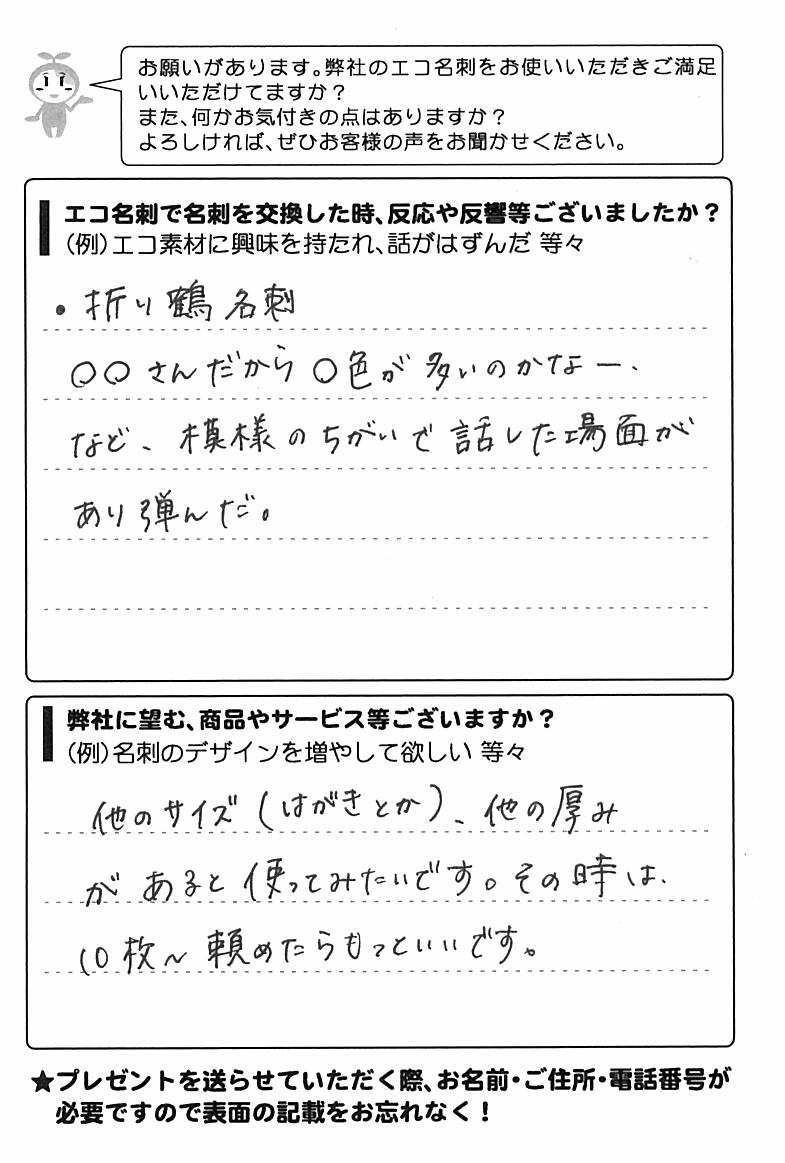 お願いがあります。弊社のエコ名刺をお使いいただきご満足
いいただけてますか？
また、何かお気付きの点はありますか？
よろしければ、ぜひお客様の声をお聞かせください。
エコ名刺で名刺を交換した時、反応や反響等ございましたか？
（例）エコ素材に興味を持たれ、話がはずんだ 等々
・折り鶴名刺
〇〇さんだから〇色が多いのかなー、
など、模様のちがいで話した場面が
あり弾んだ。
弊社に望む、商品やサービス等ございますか？
（例）名刺のデザインを増やして欲しい 等々
他のサイズ（はがきとか）、他の厚み
があると使ってみたいです。その時は、
10枚〜頼めたらもっといいです。
★プレゼントを送らせていただく際、お名前・ご住所・電話番号が
必要ですので表面の記載をお忘れなく！